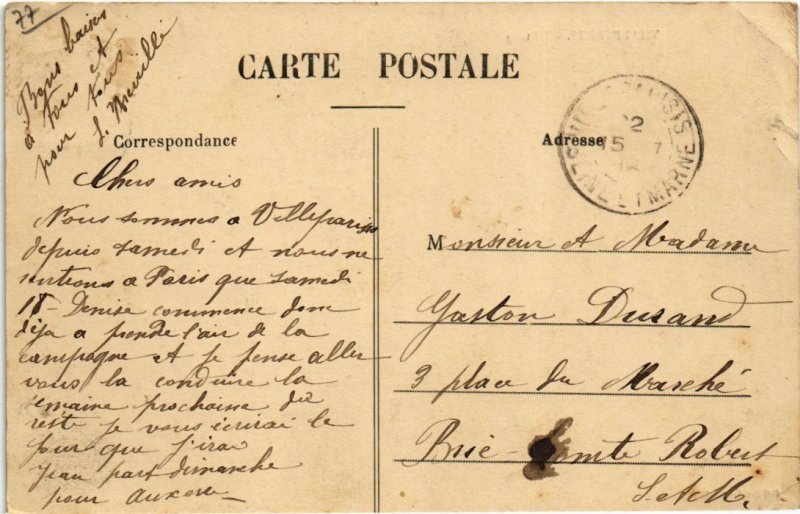 77
Bons baisers
à tous et
pour tous.
CARTE POSTALE
Correspondance
Adresse
VILLEPARISIS
22
15 7
SEINE ET MARNE
Chers amis
Nous sommes a Villeparisis
depuis samedi et nous ne
rentrons a Paris que samedi
18 - Denise commence donc
déja a prendre l'air de la
campagne et je pense aller
vous la conduire la
semaine prochaine du
reste je vous écrirai le
jour que j'irai
Jean part dimanche
pour Auxerre
Monsieur et Madame
Gaston Durand
3 place du Marché
Brie-Comte Robert
S. et M.